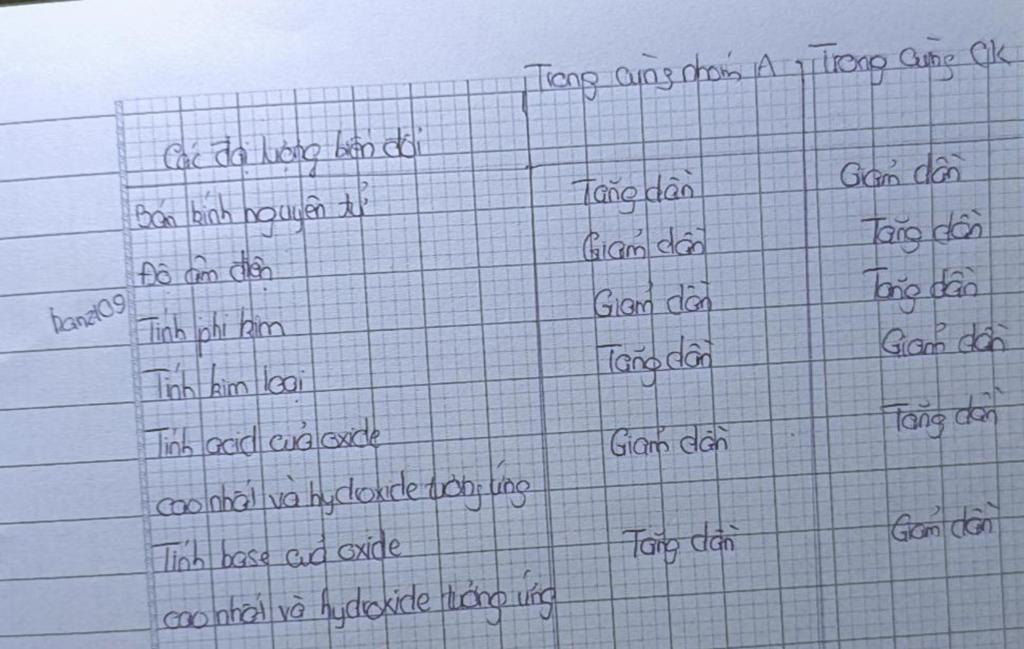 Trong cùng nhóm A Trong cùng CK
Các đại lượng biến đổi
Bán kính nguyên tử Tăng dần Giảm dần
Độ âm điện Giảm dần Tăng dần
banz109
Tính phi kim Giảm dần Tăng dần
Tính kim loại Tăng dần Giảm dần
Tính acid của oxide Giảm dần Tăng dần
cao nhất và hydroxide tương ứng
Tính base của oxide Tăng dần Giảm dần
cao nhất và hydroxide tương ứng